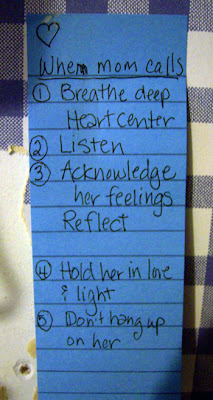 When mom calls
① Breathe deep
Heart center
② Listen
③ Acknowledge
her feelings
Reflect
④ Hold her in love
& light
⑤ Don't hang up
on her